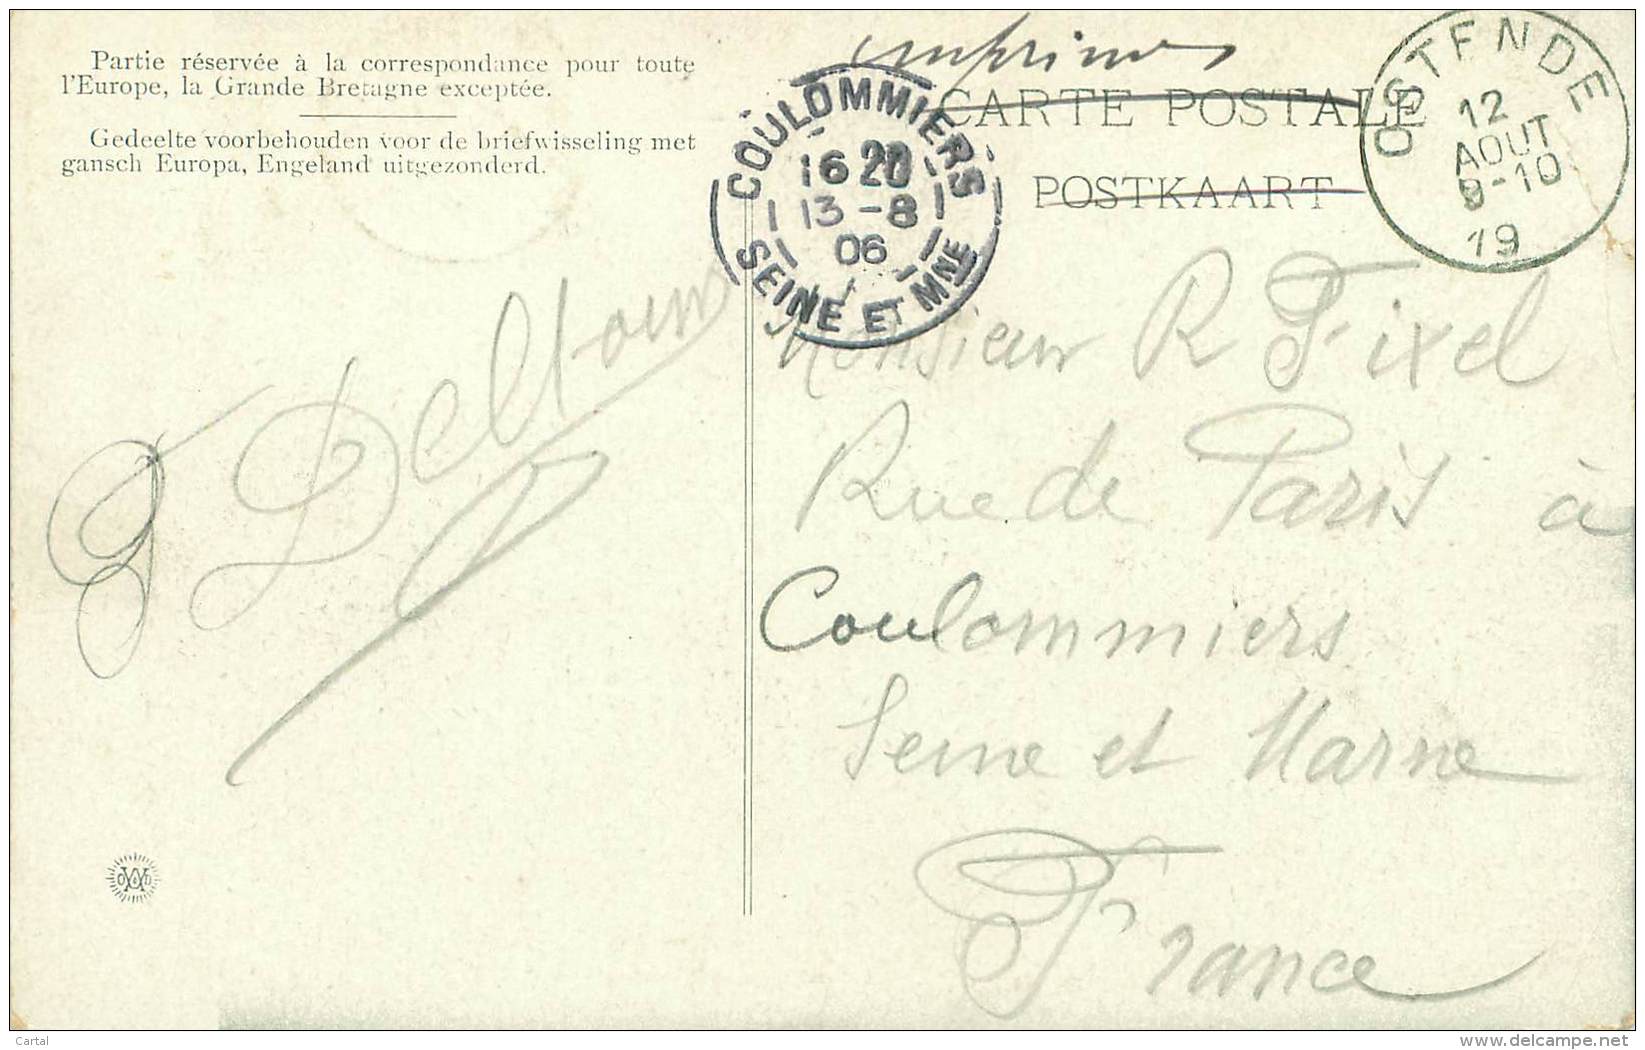 Partie réservée à la correspondance pour toute
l'Europe, la Grande Bretagne exceptée.
Gedeelte voorbehouden voor de briefwisseling met
gansch Europa, Engeland uitgezonderd.
imprimés
CARTE POSTALE
POSTKAART
COULOMMIERS
16 20
13 - 8
06
SEINE ET MNE
OSTENDE
12
AOUT
9-10
19
Monsieur R Fixel
Rue de Paris à
Coulommiers
Seine et Marne
France
Cartal
www.delcampe.net